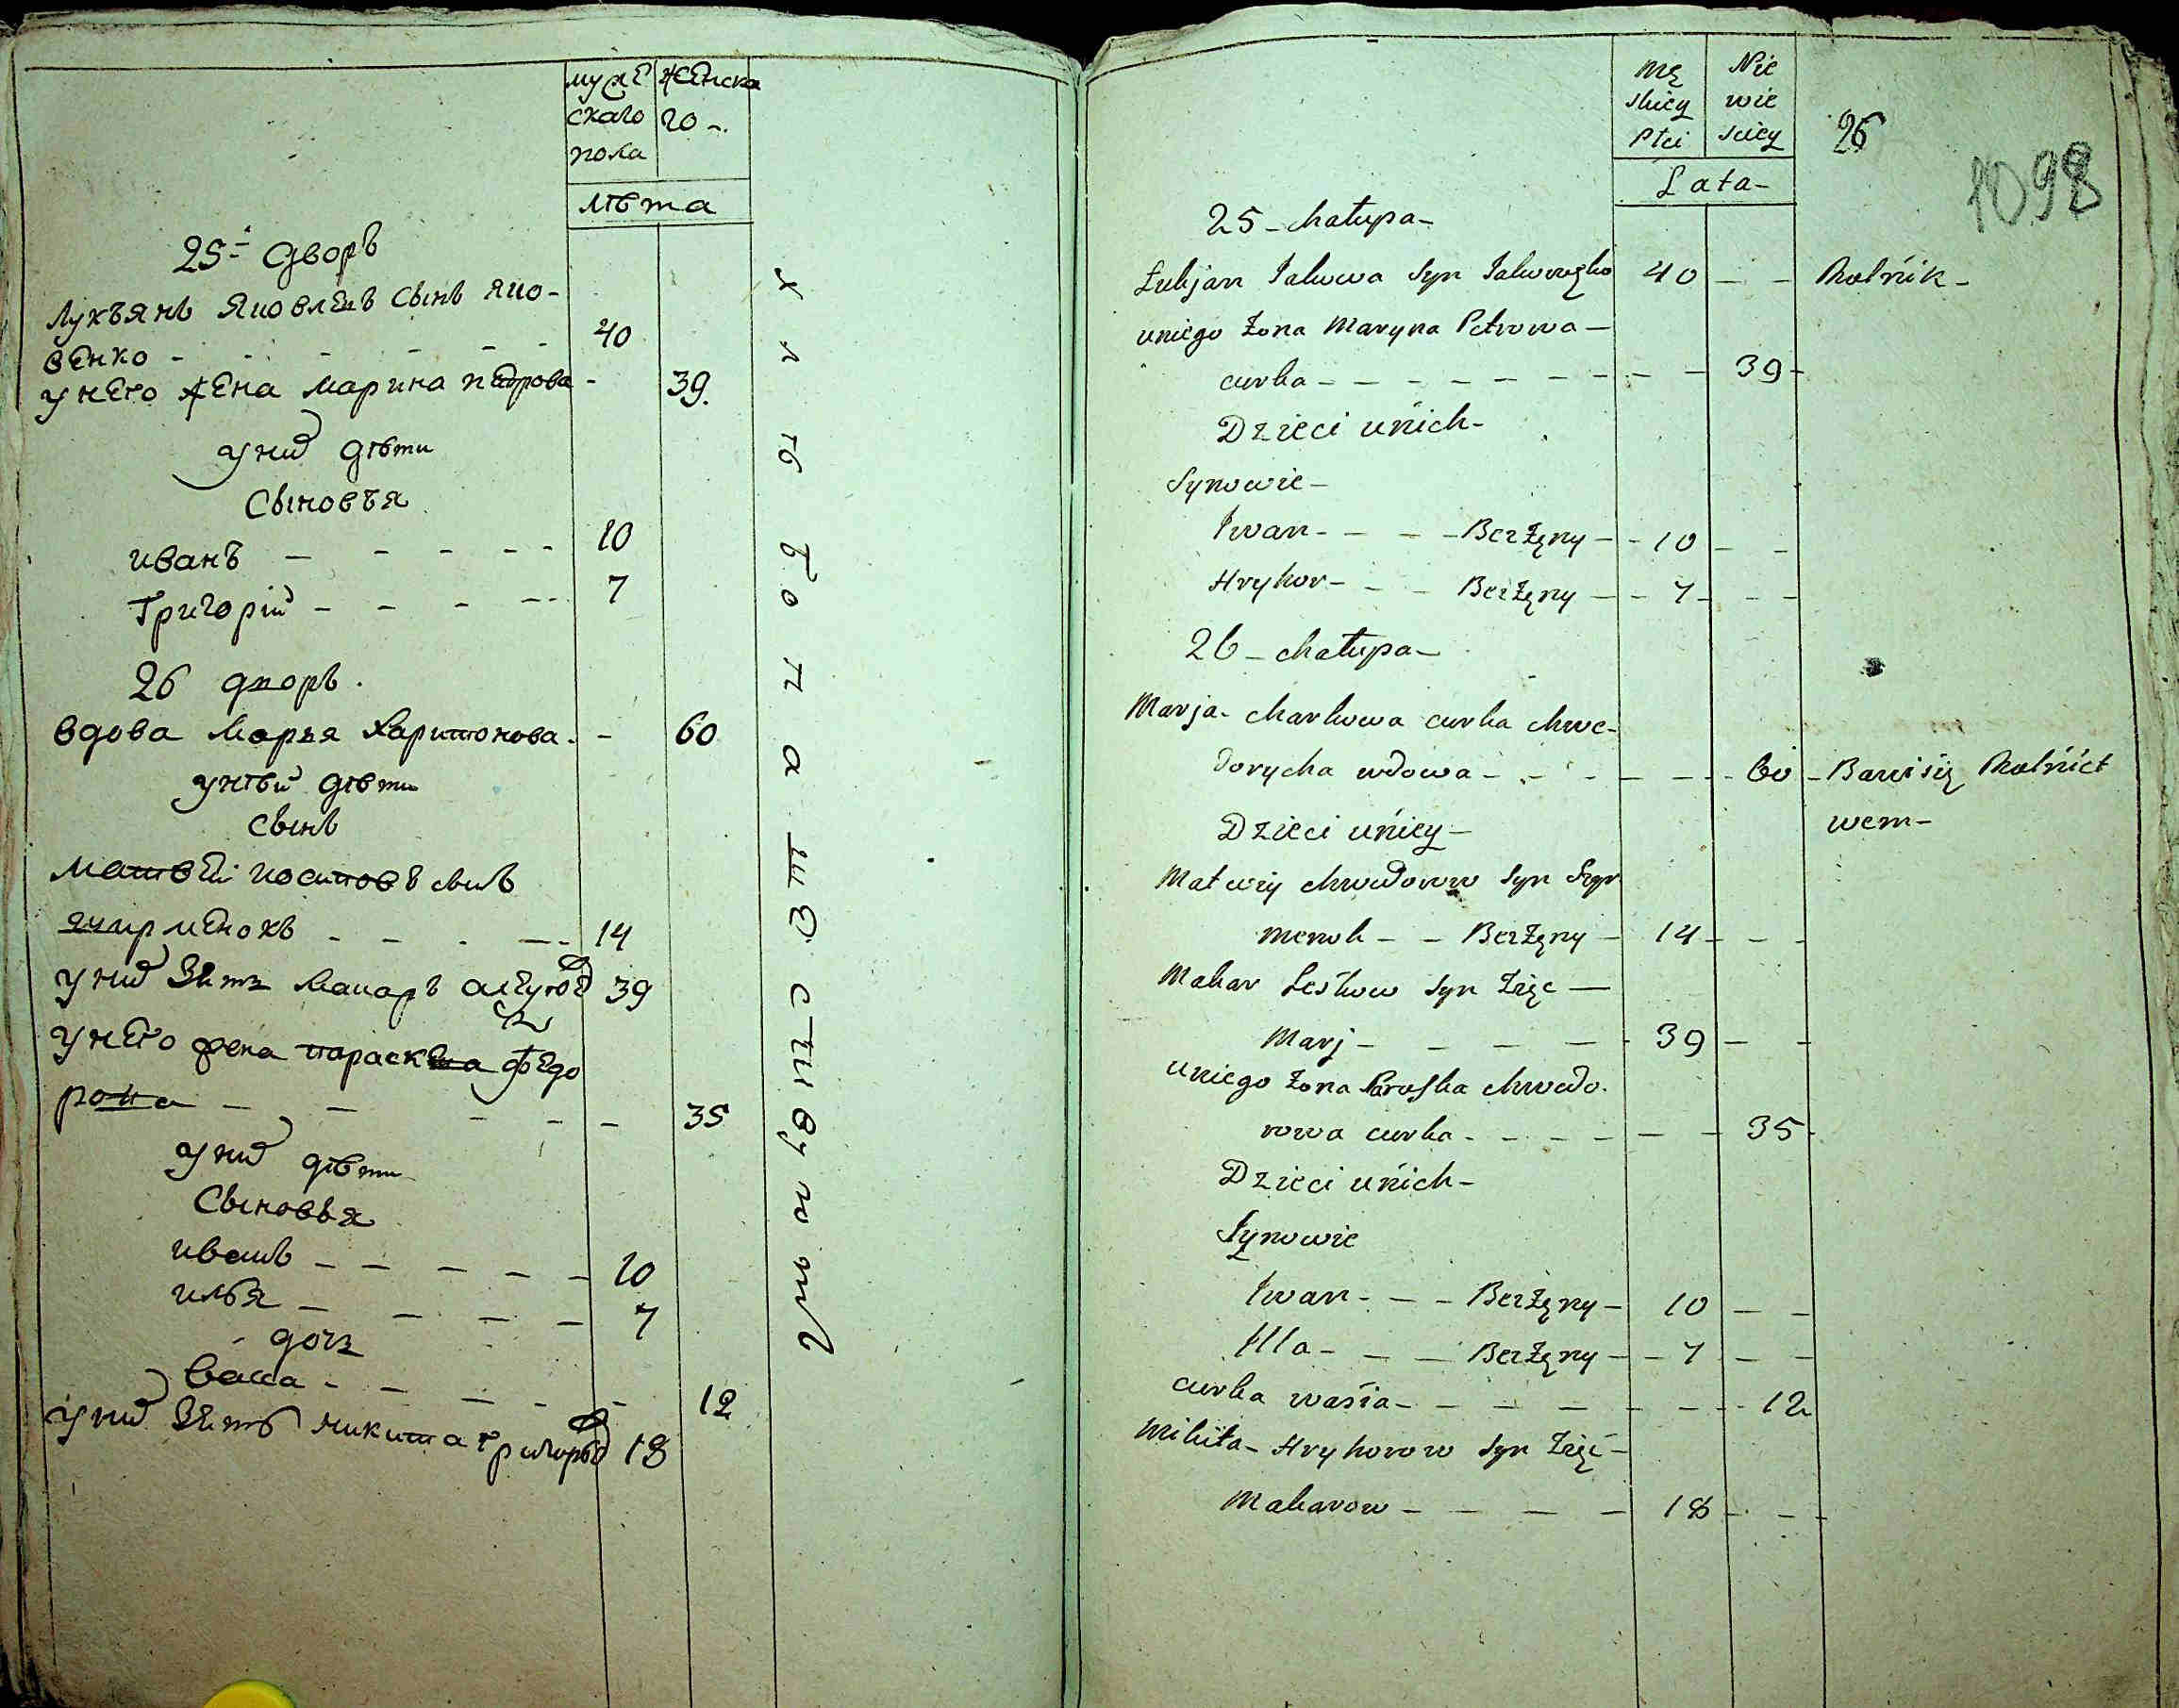 муже женска
скаго го -.
пола
лѣта
25-й дворъ
Лукъянъ Яковлевъ сынъ Яко-
венко - - - - - - 40
у него жена Марина Петрова - 39.
у них дѣти
Сыновъя
иванъ - - - - - 10
Григорій - - - - - 7
26 дворъ.
вдова Марья Харитонова. - 60
у нѣй дѣти
сынъ
Матвей сынъ
менокъ - - - - - 14
у них зять Макаръ 39
у него жена Параскева Федо
рова - - - - - 35
у них дѣти
Сыновья
иванъ - - - - - 10
илья - - - - 7
дочь
Васса - - - - - - 12
у них зять никита Григорьев 18
Mę Nie
skiey wie
Płci sciey
Lata -
26
1098
25 - Chałupa -
Łukjan Jakowa Syn Jakowęko 40 - - Rolnik -
uniego Żona Maryna Petrowa -
curka - - - - - - - - - 39 -
Dzieci unich -
Synowie -
Iwan - - - - Berżęny - - 10 - -
Hryhor - - - Berżęny - - 7 - - -
26 - Chałupa -
Marja - Charkowa curka Chwe-
dorycha wdowa - - - - - - - 60 - Bawi się Rolnict
wem -
Dzieci uniey -
Matwiy Chwedorow Syn
menok - - Berżęny - 14 - - -
Makar Leśkow Syn Zięc -
Marj - - - - - - 39 - -
uniego Żona Paraska Chwedo.
rowa curka - - - - - - - 35
Dzieci unich -
Synowie
Iwan - - - Berżęny - 10 - -
Illa - - - Berżęny - - 7 - -
curka wasia - - - - - - - - 12
Mikita - Hryhorow Syn Zięć -
Makarow - - - - - 18 - - -